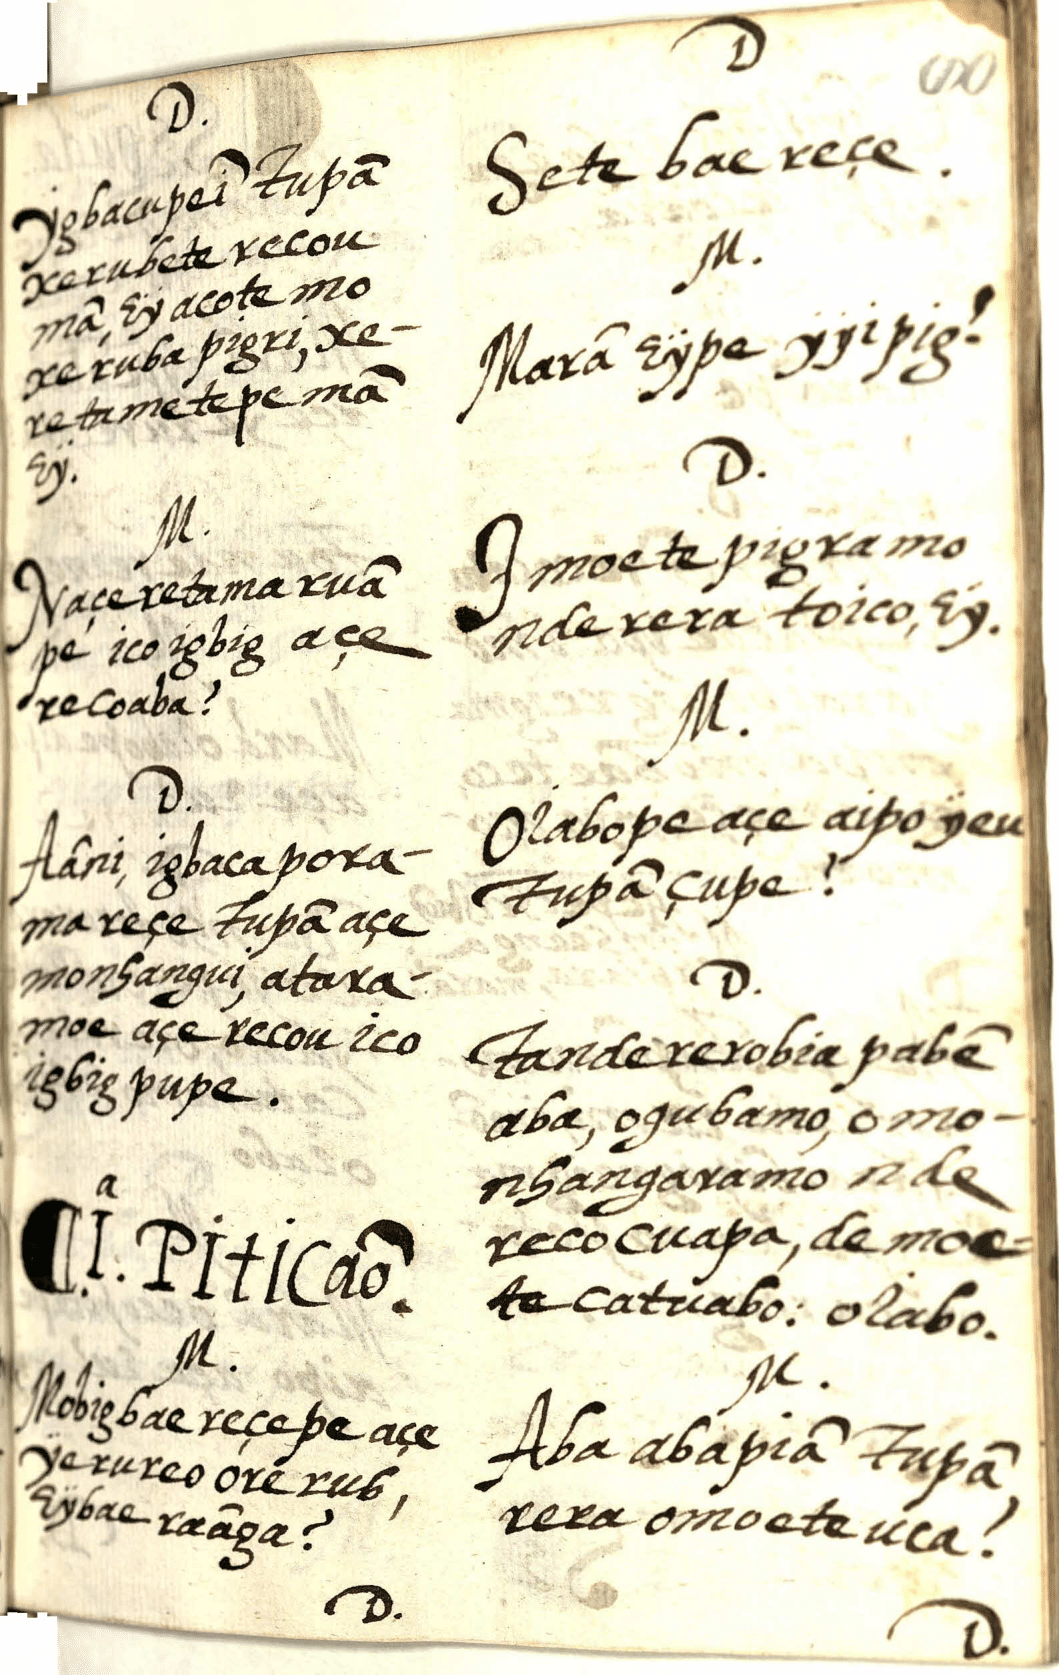 D.
ygbacupeĩ tupã
xerubete recou
mã, Eÿ acote mo
xe ruba pigri, xe-
retamete pe mã
Eÿ.
M.
Naçeretama ruã
pe ico igbig açe
recoaba?
D.
Aâni, igbaca pora-
ma reçe tupã açe
monhangui, atara-
moe açe recou ico
igbig pupe.
¶ I.ª Piticaõ.
M.
Mobig bae reçe pe açe
yerureo ore rub,
Eÿbae raãga?
D.
D
Sete bae reçe.
M.
Marã Eÿpe ÿyipig?
D.
I moete pigramo
nde rera toico, Eÿ.
M.
Olabope açe aipo ÿeu
tupã çupe?
D.
Tande rerobia pabẽ
aba, ogubamo, o mo-
nhangaramo nde
reco cuapa, de moe-
te catuabo: olabo.
M.
Aba abapiã Tupã
rera omoete uca?
D.